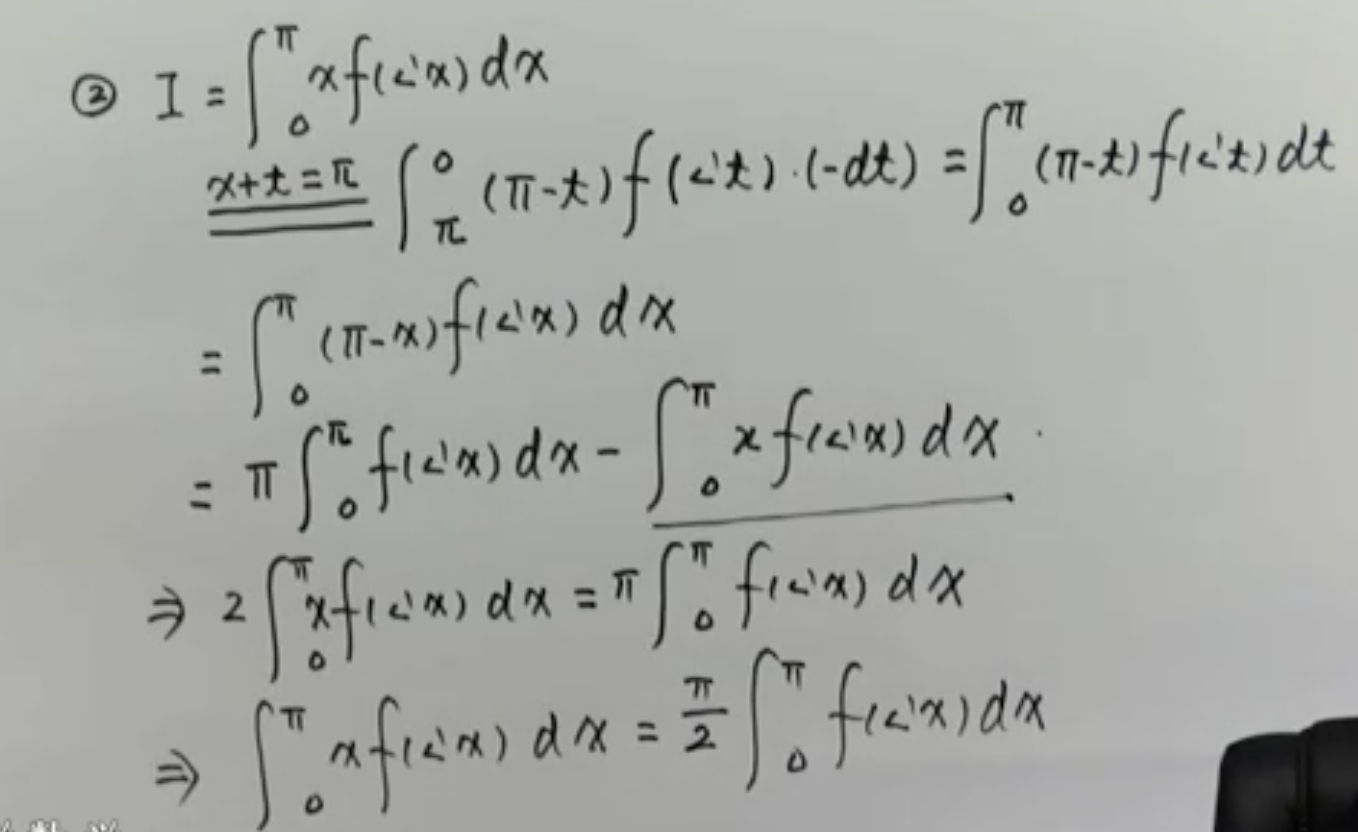 ② I = ∫₀^π x f(sin x) dx
x+t=π ∫_π^0 (π-t) f(sin t)·(-dt) = ∫₀^π (π-t) f(sin t) dt
= ∫₀^π (π-x) f(sin x) dx
= π ∫₀^π f(sin x) dx - ∫₀^π x f(sin x) dx.
⇒ 2 ∫₀^π x f(sin x) dx = π ∫₀^π f(sin x) dx
⇒ ∫₀^π x f(sin x) dx = π/2 ∫₀^π f(sin x) dx